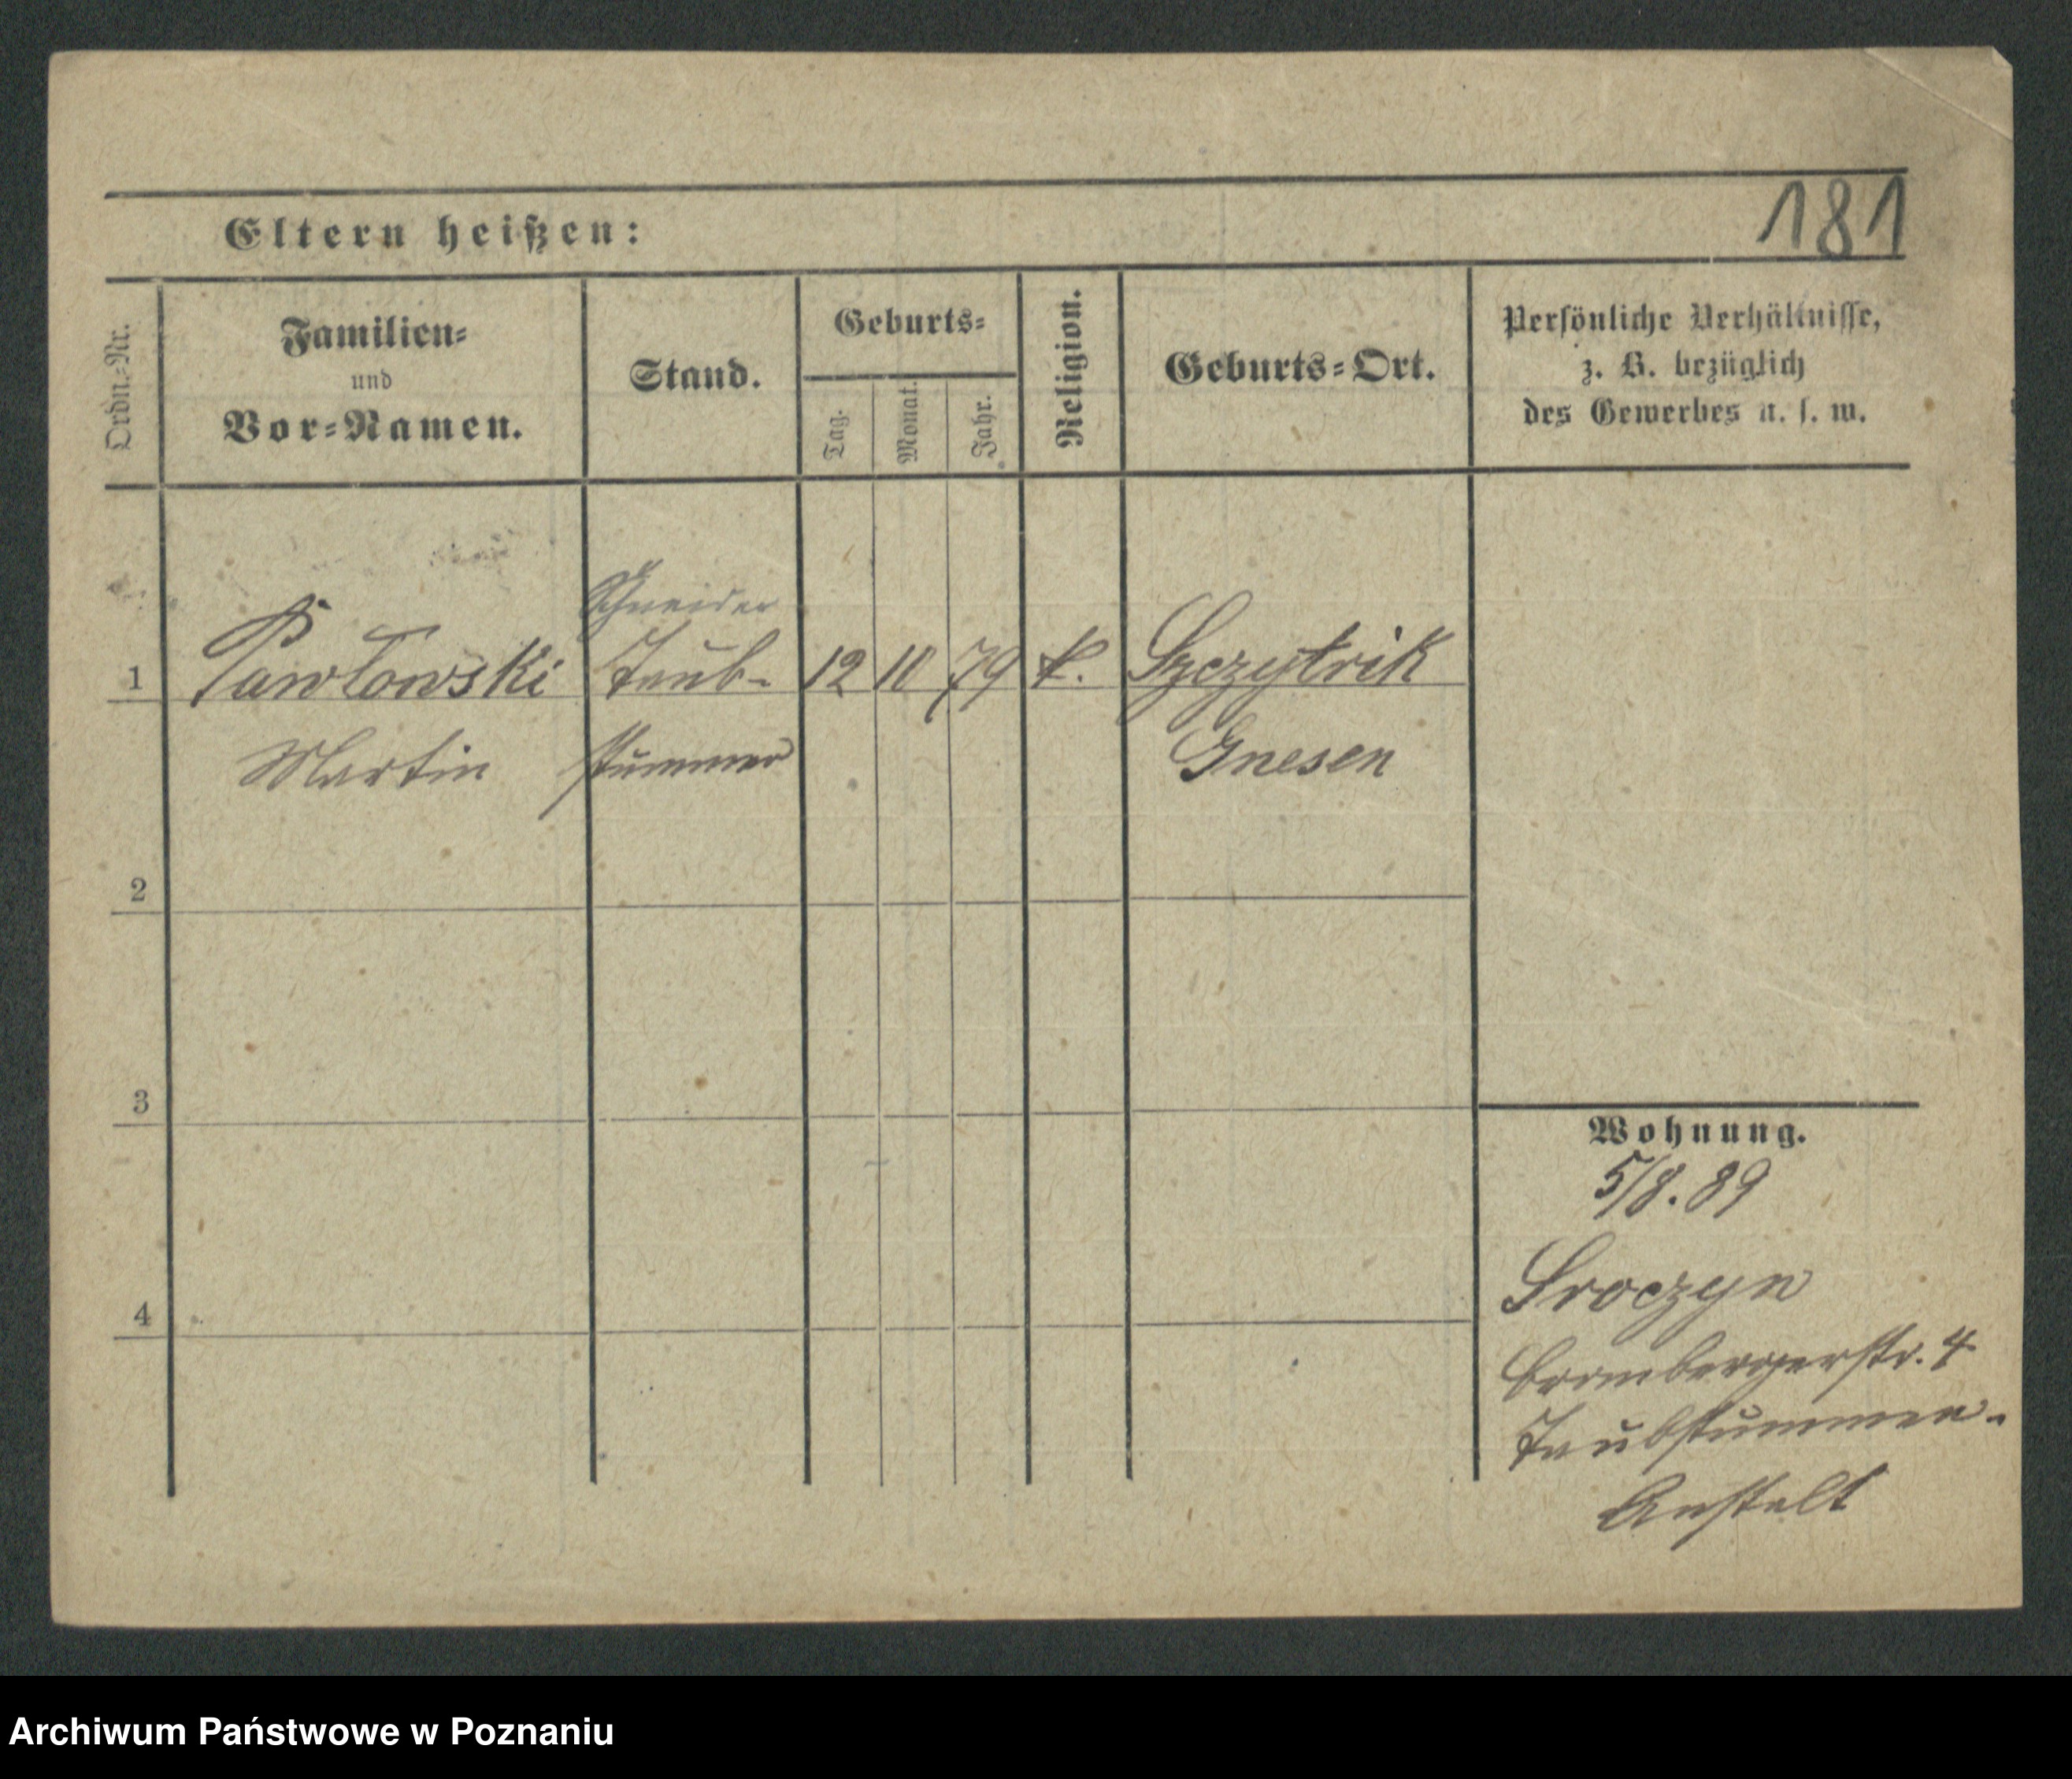 181
Eltern heißen:
Ordn.-Nr.
Familien-
und
Vor-Namen.
Stand.
Geburts-
Tag.
Monat.
Jahr.
Religion.
Geburts-Ort.
Persönliche Verhältnisse,
z. B. bezüglich
des Gewerbes u. s. w.
Schneider
1 Pawłowski Taub- 12 10 79 k. Szczytnik
Martin stummer Gnesen
2
3
4
Wohnung.
5/8. 89
Sroczyn
Brombergerstr. 4
Taubstummen-
Anstalt
Archiwum Państwowe w Poznaniu